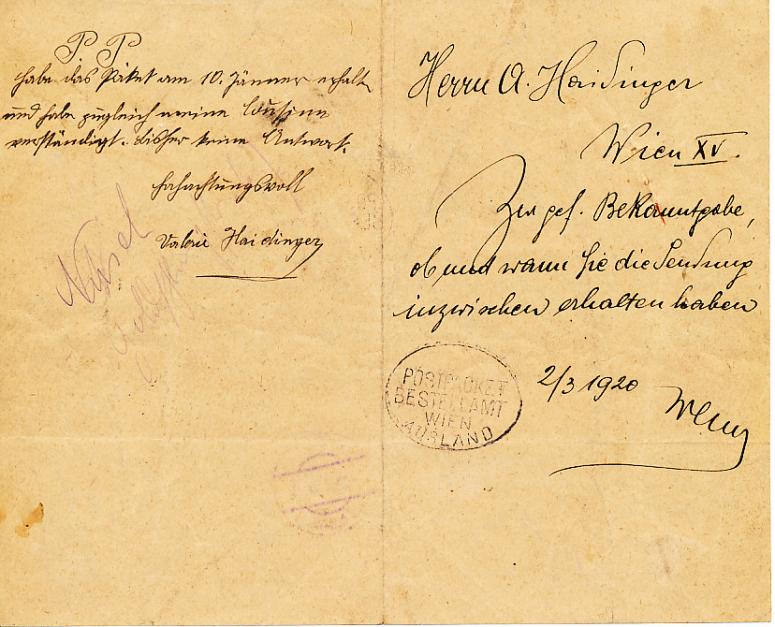 P P
habe das Paket am 10. Jänner erhalt
und habe zugleich meine Cousine
verständigt. bisher keine Antwort.
hochachtungsvoll
Valerie Haidinger
Herrn A. Haidinger
Wien XV.
Zur gef. Bekanntgabe,
ob und wann Sie die Sendung
inzwischen erhalten haben
2/3 1920
POSTPAKET
BESTELLAMT
WIEN
AUSLAND